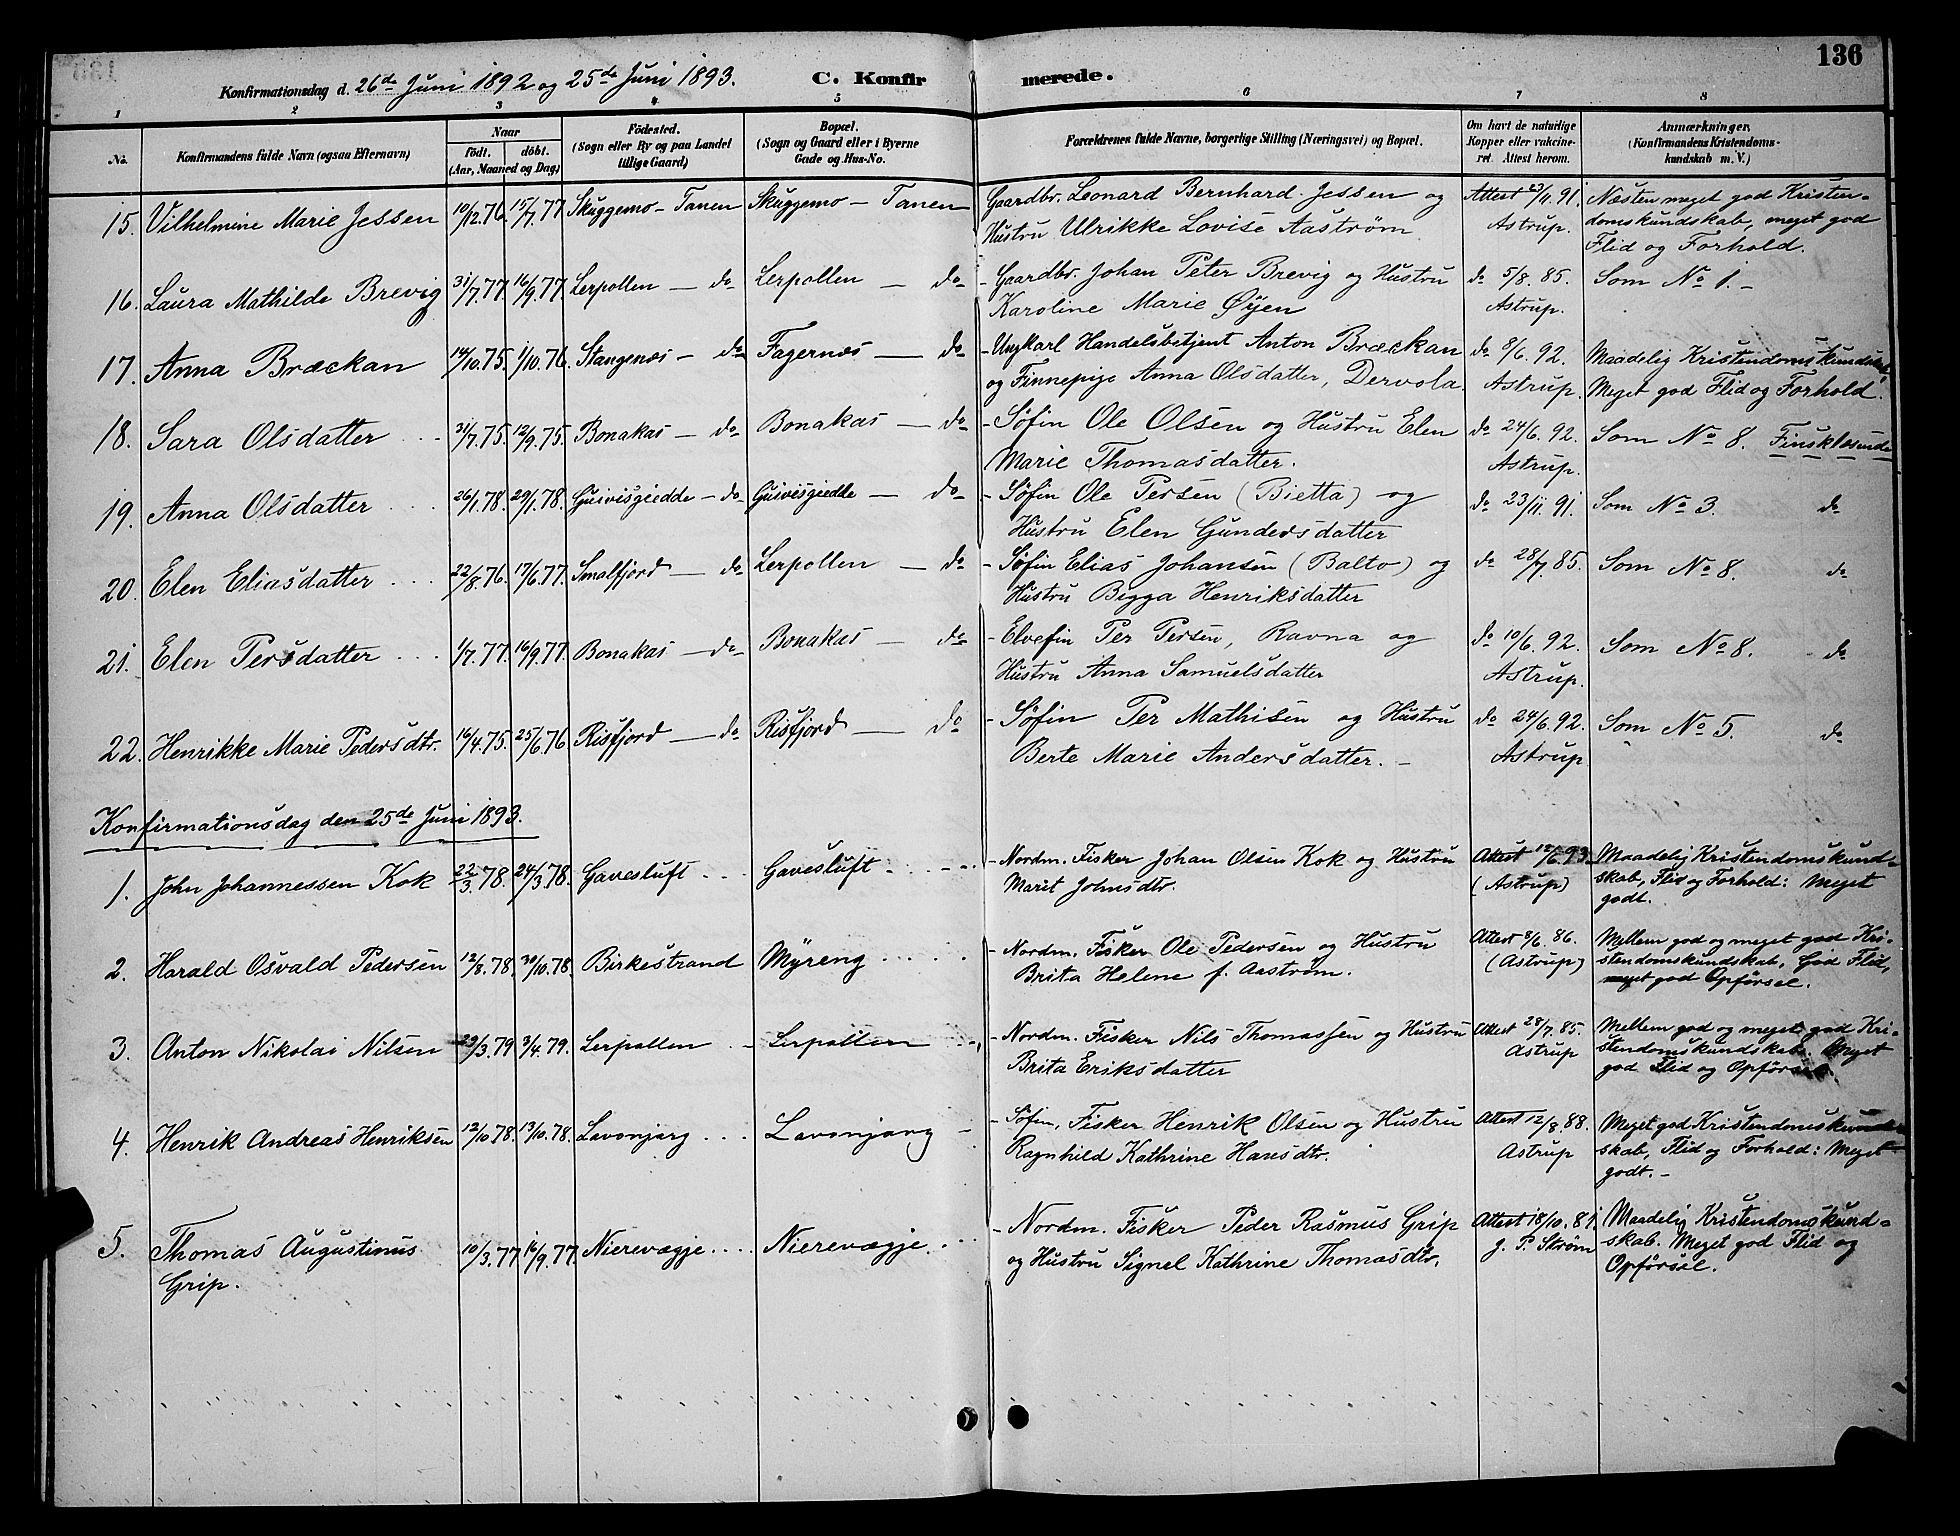 136
Konfirmationsdag d. 26de Juni 1892 og 25de Juni 1893. C. Konfirmerede.
1 2 3 4 5 6 7 8
No. Konfirmandens fulde Navn (ogsaa Efternavn) Naar født. døbt. (Aar, Maaned og Dag) Födested. (Sogn eller By og paa Landet tillige Gaard) Bopæl. (Sogn og Gaard eller i Byerne Gade og Hus-No. Forældrenes fulde Navne, borgerlige Stilling (Næringsvei) og Bopæl. Om havt de naturlige Kopper eller vakcineret. Attest herom. Anmærkninger. (Konfirmandens Kristendomskundskab m. V.)
15. Vilhelmine Marie Jessen 10/12.76. 15/7.77. Skuggemo - Tanen Skuggemo - Tanen Gaardbr. Leonard Bernhard Jessen og Attest 23/11.91. Næsten meget god Kristen-
Hustru Ulrikke Lovise Aaström. Astrup. domskundskab, meget god
Flid og Forhold.
16. Laura Mathilde Brevig 31/7.77. 16/9.77. Lerpollen - do Lerpollen - do - Gaardbr. Johan Peter Brevig og Hustru do 5/8.85. Som No 1. -
Karoline Marie Øyen Astrup.
17. Anna Bræckan 14/10.75. 1/10.76. Stangenæs - do Fagernæs - do - Ungkarl Handelsbetjent Anton Bræckan do 8/6.92. Maadelig Kristendomskundskab
og Finnepige Anna Olsdatter, Dervola. Astrup. Meget god Flid og Forhold.
18. Sara Olsdatter 31/7.75. 12/9.75. Bonakas - do Bonakas - do - Søfin Ole Olsen og Hustru Elen do 24/6.92. Som No 8. Finsklæsende
Marie Thomasdatter. Astrup.
19. Anna Olsdatter 26/1.78. 29/1.78. Guivisgiedde - do Guivisgiedde - do - Søfin Ole Persen (Bietta) og do 23/11.91. Som No 3. do
Hustru Elen Gundersdatter
20. Elen Eliasdatter 22/8.76. 17/6.77. Smalfjord - do Lerpollen - do - Søfin Elias Johansen (Balto) og do 28/7.85. Som No 8. do
Hustru Bigga Henriksdatter
21. Elen Persdatter 1/7.77. 16/9.77. Bonakas - do Bonakas - do - Elvefin Per Persen, Ravna og do 10/6.92. Som No 8. - do
Hustru Anna Samuelsdatter Astrup.
22. Henrikke Marie Pedersdtr. 16/4.75. 25/6.76 Risfjord - do Risfjord - do - Søfin Per Mathisen og Hustru do 24/6.92. Som No 5. do
Berte Marie Andersdatter. - Astrup
Konfirmationsdag den 25de Juni 1893.
1. John Johannessen Kok 22/3.78. 24/3.78. Gavesluft Gavesluft - Nordm. Fisker Johan Olsen Kok og Hustru Attest 12/6.93. Maadelig Kristendomskund-
Marit Johnsdtr. (Astrup) skab, Flid og Forhold: Meget
godt.
2. Harald Osvald Pedersen 12/8.78. 30/10.78. Birkestrand Myreng - Nordm. Fisker Ole Pedersen og Hustru Attest 8/6.86. Mellem god og meget god Kri-
Brita Helene f. Aaström. (Astrup) stendomskundskab, God Flid,
meget god Opförsel.
3. Anton Nikolai Nilsen 29/3.79 3/4.79. Lerpollen Lerpollen - Nordm. Fisker Nils Thomassen og Hustru Attest 28/7.85. Mellem god og meget god Kri-
Brita Eriksdatter Astrup stendomskundskab. Meget
god Flid og Opförsel.
4. Henrik Andreas Henriksen 12/10.78. 13/10.78. Lavonjarg Lavonjarg - Søfin, Fisker Henrik Olsen og Hustru Attest 12/8.88. Meget god Kristendomskund-
Ragnhild Kathrine Hansdtr. Astrup skab, Flid og Forhold: Meget
godt. -
5. Thomas Augustinus 10/3.77 16/9.77. Nierevægje Nierevægje - Nordm. Fisker Peder Rasmus Grip Attest 18/10.81. Maadelig Kristendomskund-
Grip. og Hustru Signel Kathrine Thomasdtr. J. P. Ström skab. Meget god Flid og
Opförsel.